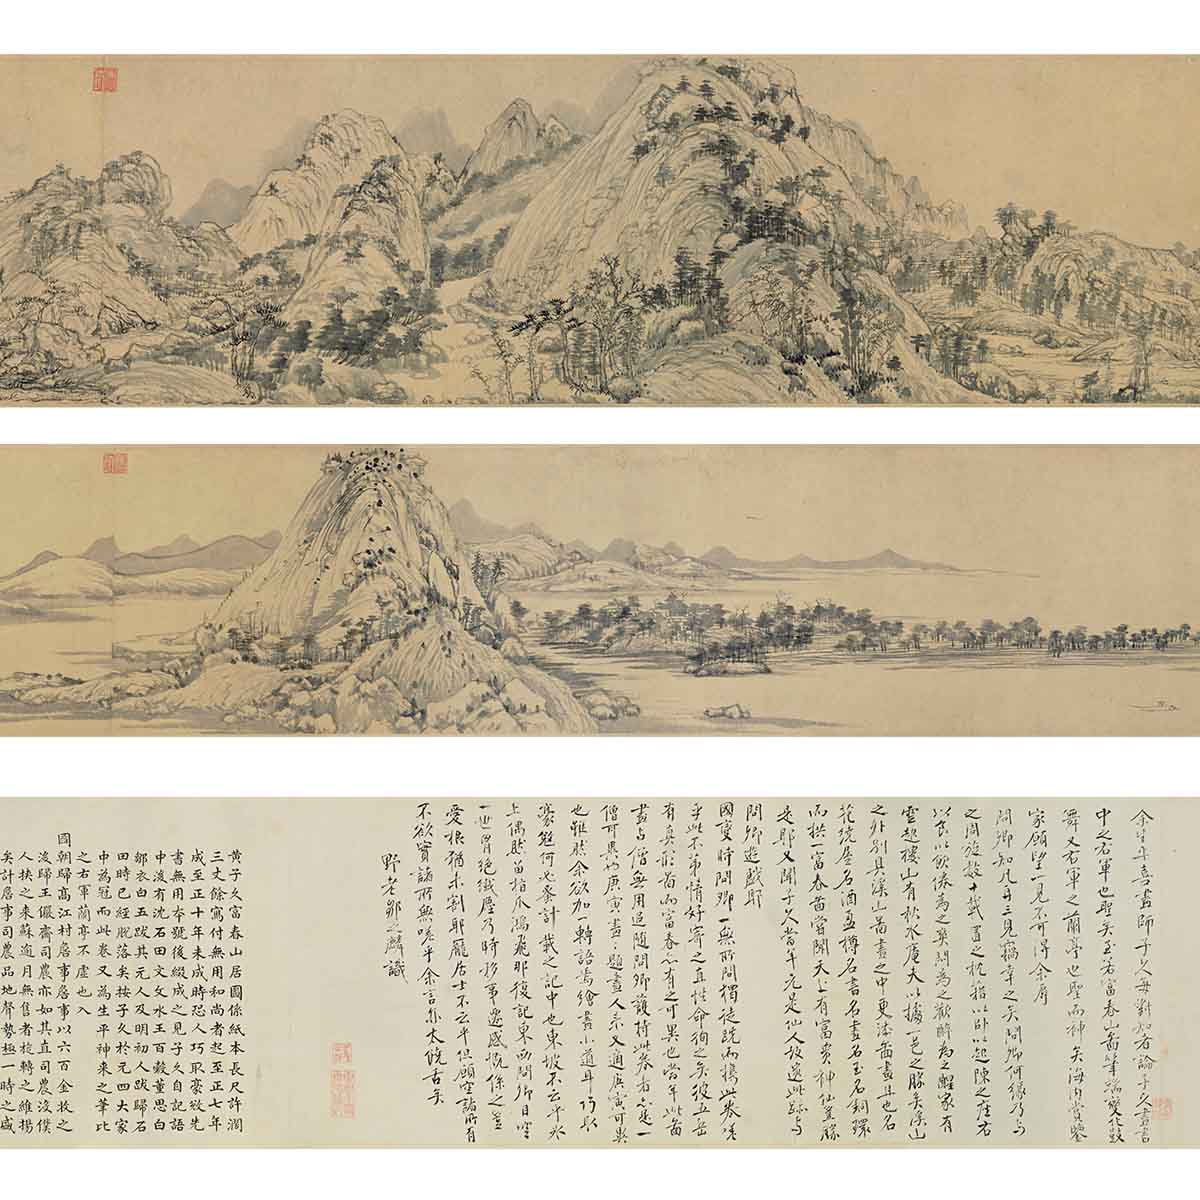 余生平喜畫師子久每對知者論子久畫書
中之右軍也聖矣至若富春山圖筆端變化鼓
舞又右軍之蘭亭也聖而神矣海內賞鑒
家願望一見不可得余辱
問卿知凡再三見竊幸之矣問卿何緣乃與
之周旋數十載置之枕籍以臥以起陳之座右
以食以飲倦為之爽悶為之歡醉為之醒家有
雲起樓山有秋水菴夫以據一邑之勝矣溪山
之外別具溪山圖畫之中更添圖畫且也名
花繞屋名酒盈樽名書名畫名玉名銅環
而拱一富春圖嘗聞天上有富貴神仙豈勝
是耶又聞子久當年元是仙人故遺此跡與
問卿遊戲耶
國變時問卿一無所問獨徒跣而攜此卷嗟
乎此不第情好寄之直性命狥之矣彼五岳
有真形圖而富春亦有之可異也當年此圖
畫與僧無用追隨問卿護持此卷者亦是一
僧可異也庚寅畫題畫人來又適庚寅可異
也雖然余欲加一轉語焉繪畫小道耳巧取
豪奪何必蚤計載之記中也東坡不云乎冰
上偶然留指爪鴻飛那復記東西問卿目空
一世胷絕纖塵乃時移事遷感慨係之豈
愛根猶未割耶龐居士不云乎但願空諸所有
不欲實諸所無嗟乎余言亦太饒舌矣
野老鄒之麟識
黃子久富春山居圖係紙本長尺許闊
三丈餘寫付無用和尚者起至正七年
成至正十年未成時恐人巧取豪敓先
書無用本號後綴成之見子久自記語
中後有沈石田文文水王百穀董思白
鄒衣白五跋其元人及明初人跋歸石
田時已經脫落矣按子久於元四大家
中為冠而此卷又為生平神來之筆比
之右軍蘭亭不虛也入
國朝歸高江村詹事詹事以六百金收之
後歸王儼齋司農亦如其直司農沒僕
人挾之來蘇逾月無售者旋轉之維揚
矣計詹事司農品地聲勢極一時之盛